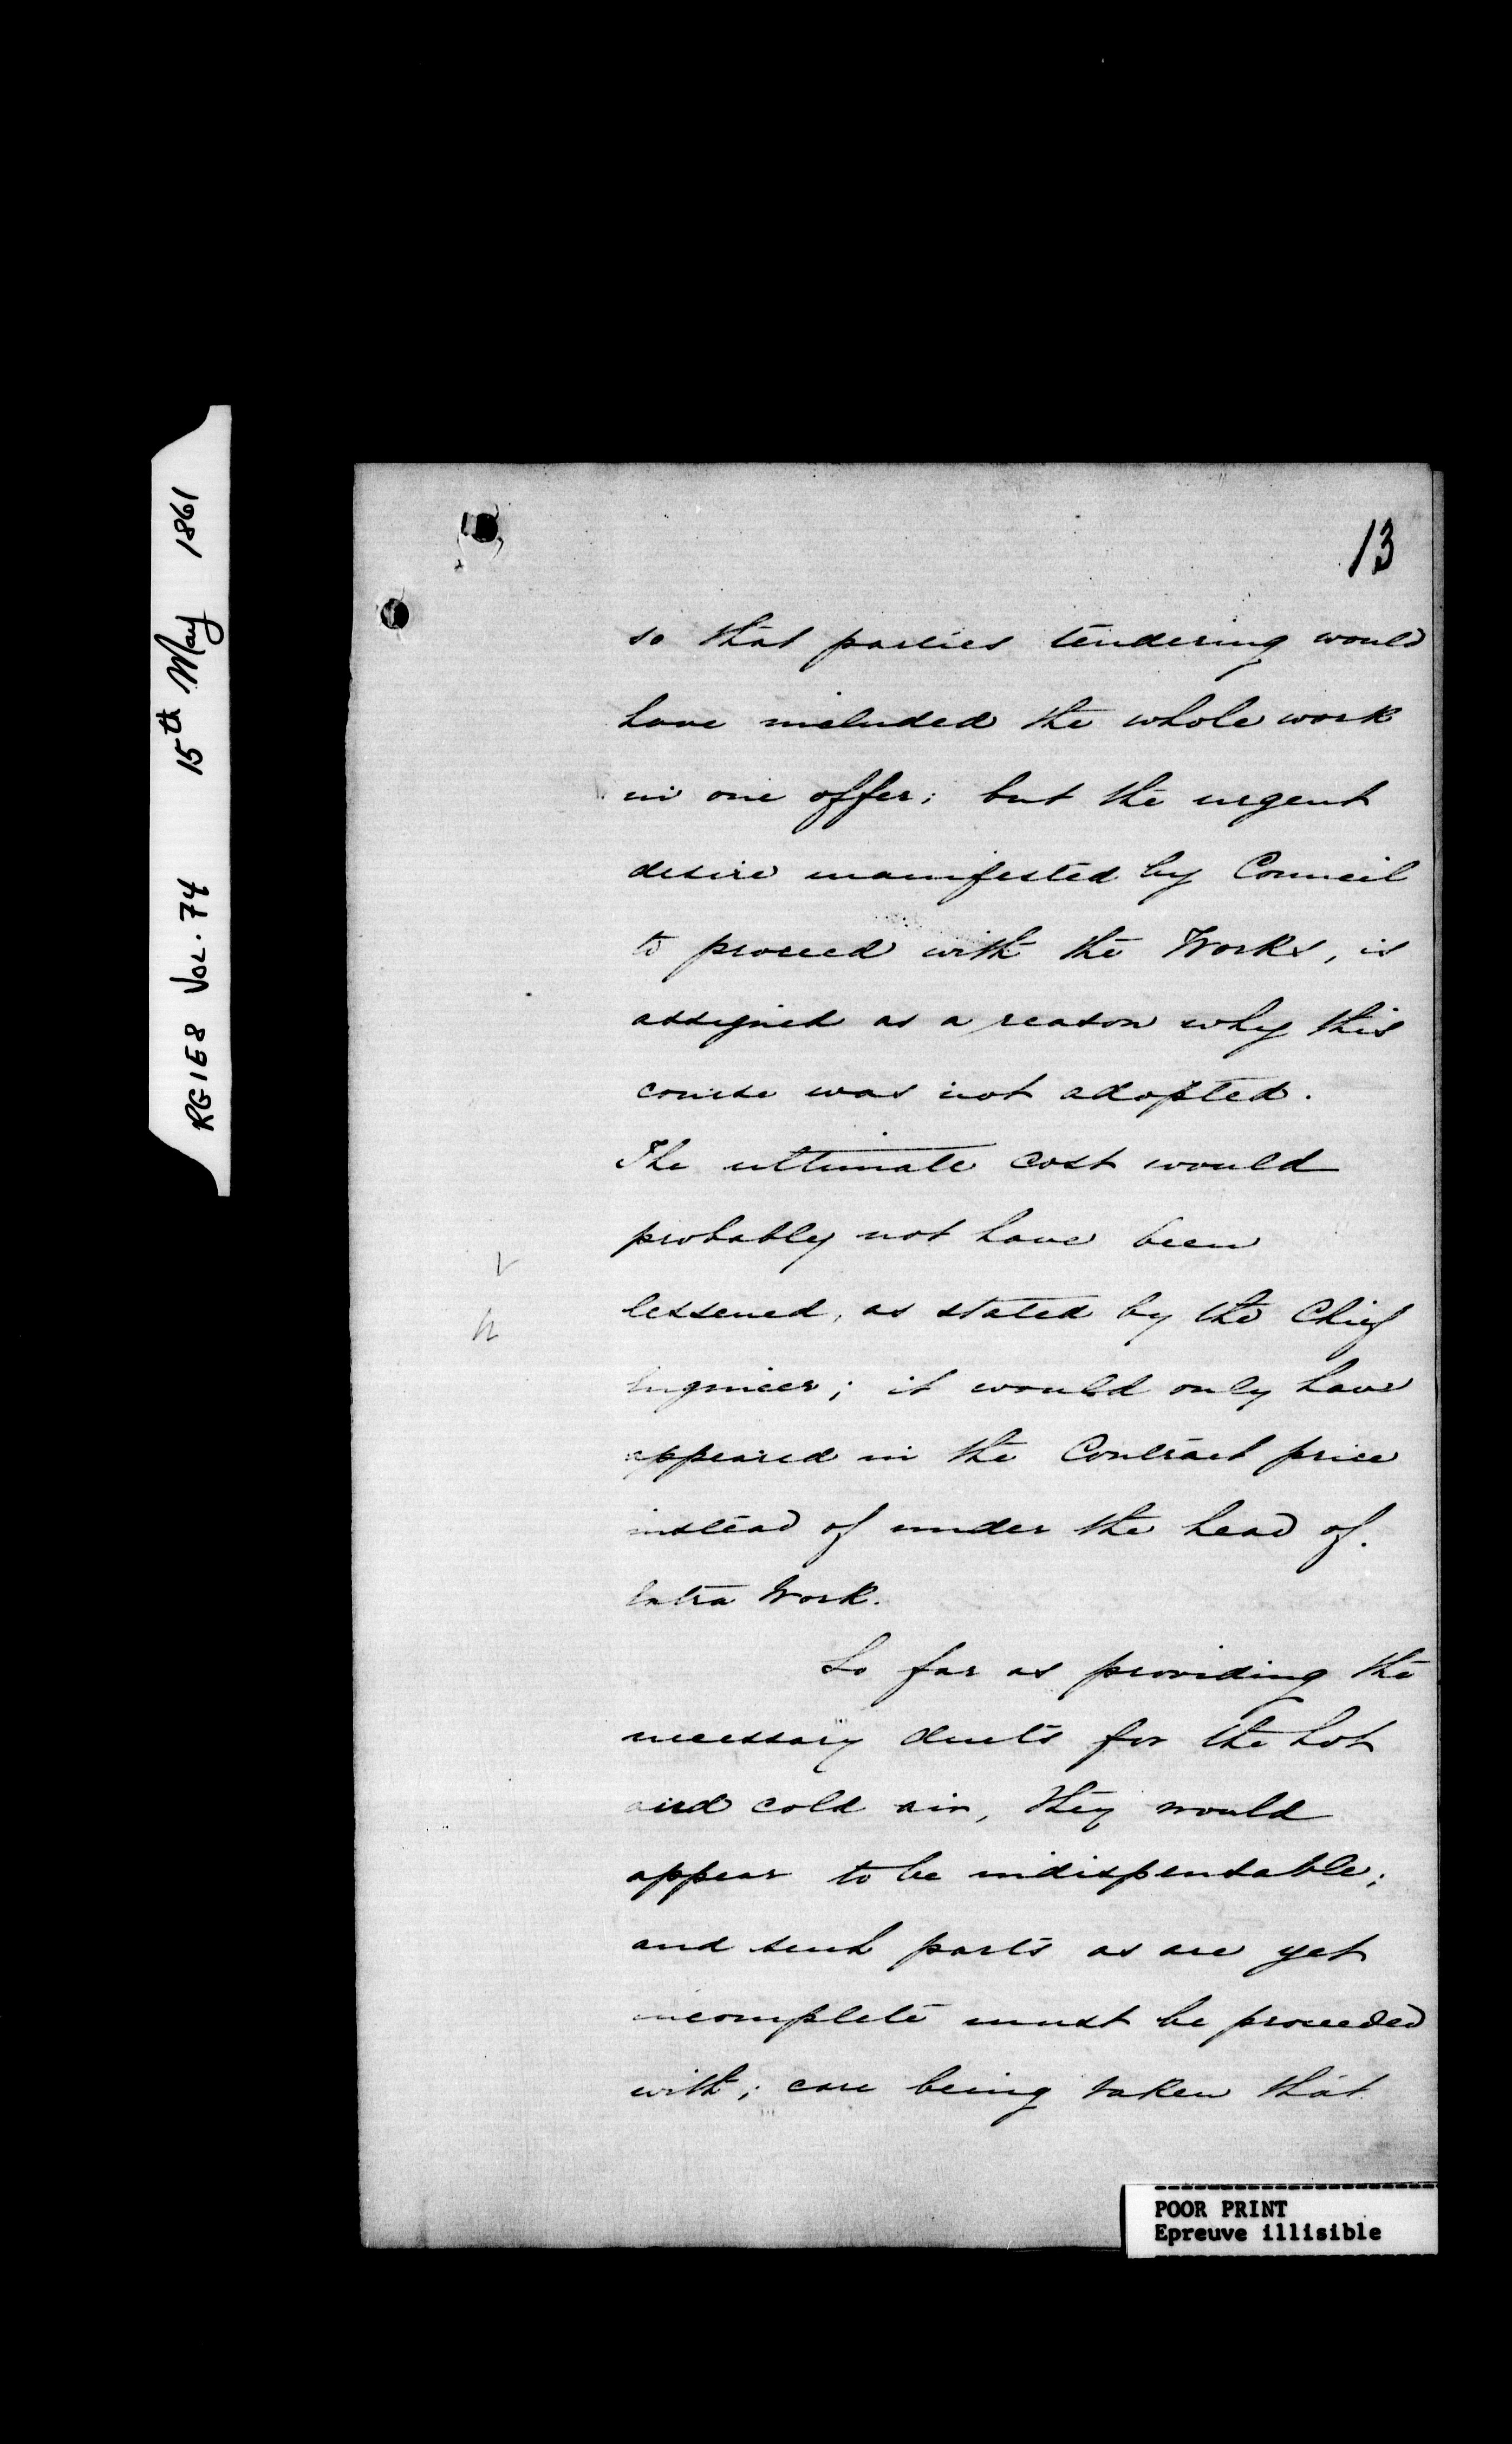 RG1E8 VOL. 74 15th May 1861
13
so that parties tendering would
have included the whole work
in one offer; but the urgent
desire manifested by Council
to proceed with the Works, is
assigned as a reason why this
course was not adopted.
The ultimate cost would
probably not have been
lessened, as stated by the Chief
Engineer; it would only have
appeared in the Contract price
instead of under the head of.
Extra Work.
So far as providing the
necessary ducts for the hot
and cold air, they would
appear to be indispensable;
and such parts as are yet
incomplete must be proceeded
with; care being taken that
POOR PRINT
Epreuve illisible